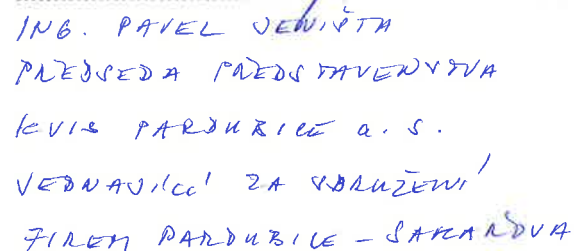 ING. PAVEL JENIŠTA
PŘEDSEDA PŘEDSTAVENSTVA
KVIS PARDUBICE a.s.
JEDNAJÍCÍ ZA SDRUŽENÍ
FIREM PARDUBICE – SAKAŘOVA